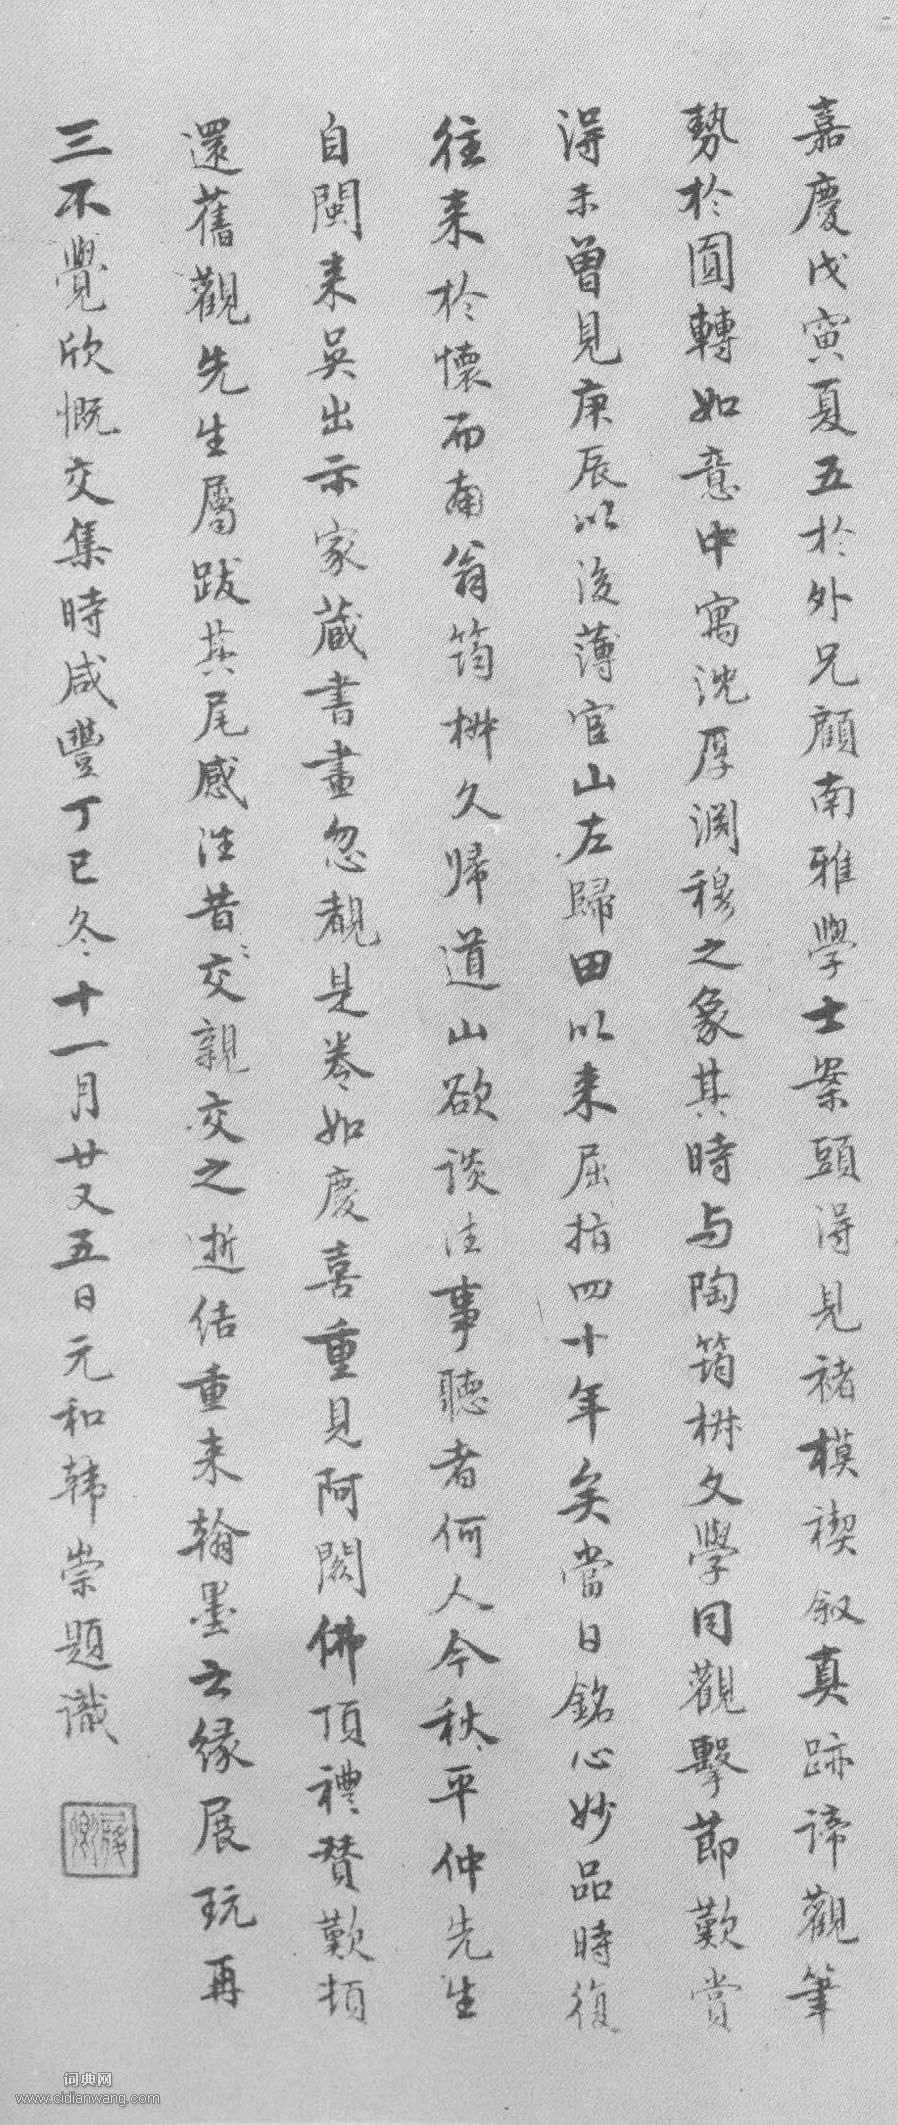 嘉慶戊寅夏五於外兄顧南雅學士案頭得見褚模禊敘真跡諦觀筆
勢於圓轉如意中寓沈厚淵穆之象其時与陶筠椒文學同觀擊節歎賞
得未曾見庚辰以後薄宦山左歸田以来屈指四十年矣當日銘心妙品時復
往来於懷而南翁筠椒久歸道山欲談往事聽者何人今秋平仲先生
自閩来吳出示家藏書畫忽覩是卷如慶喜重見阿閦佛頂禮贊歎頓
還舊觀先生屬跋其尾感往昔交親交之逝佶重来翰墨之緣展玩再
三不覺欣慨交集時咸豐丁巳冬十一月廿又五日元和韩崇題識
词典网
www.cidianwang.com